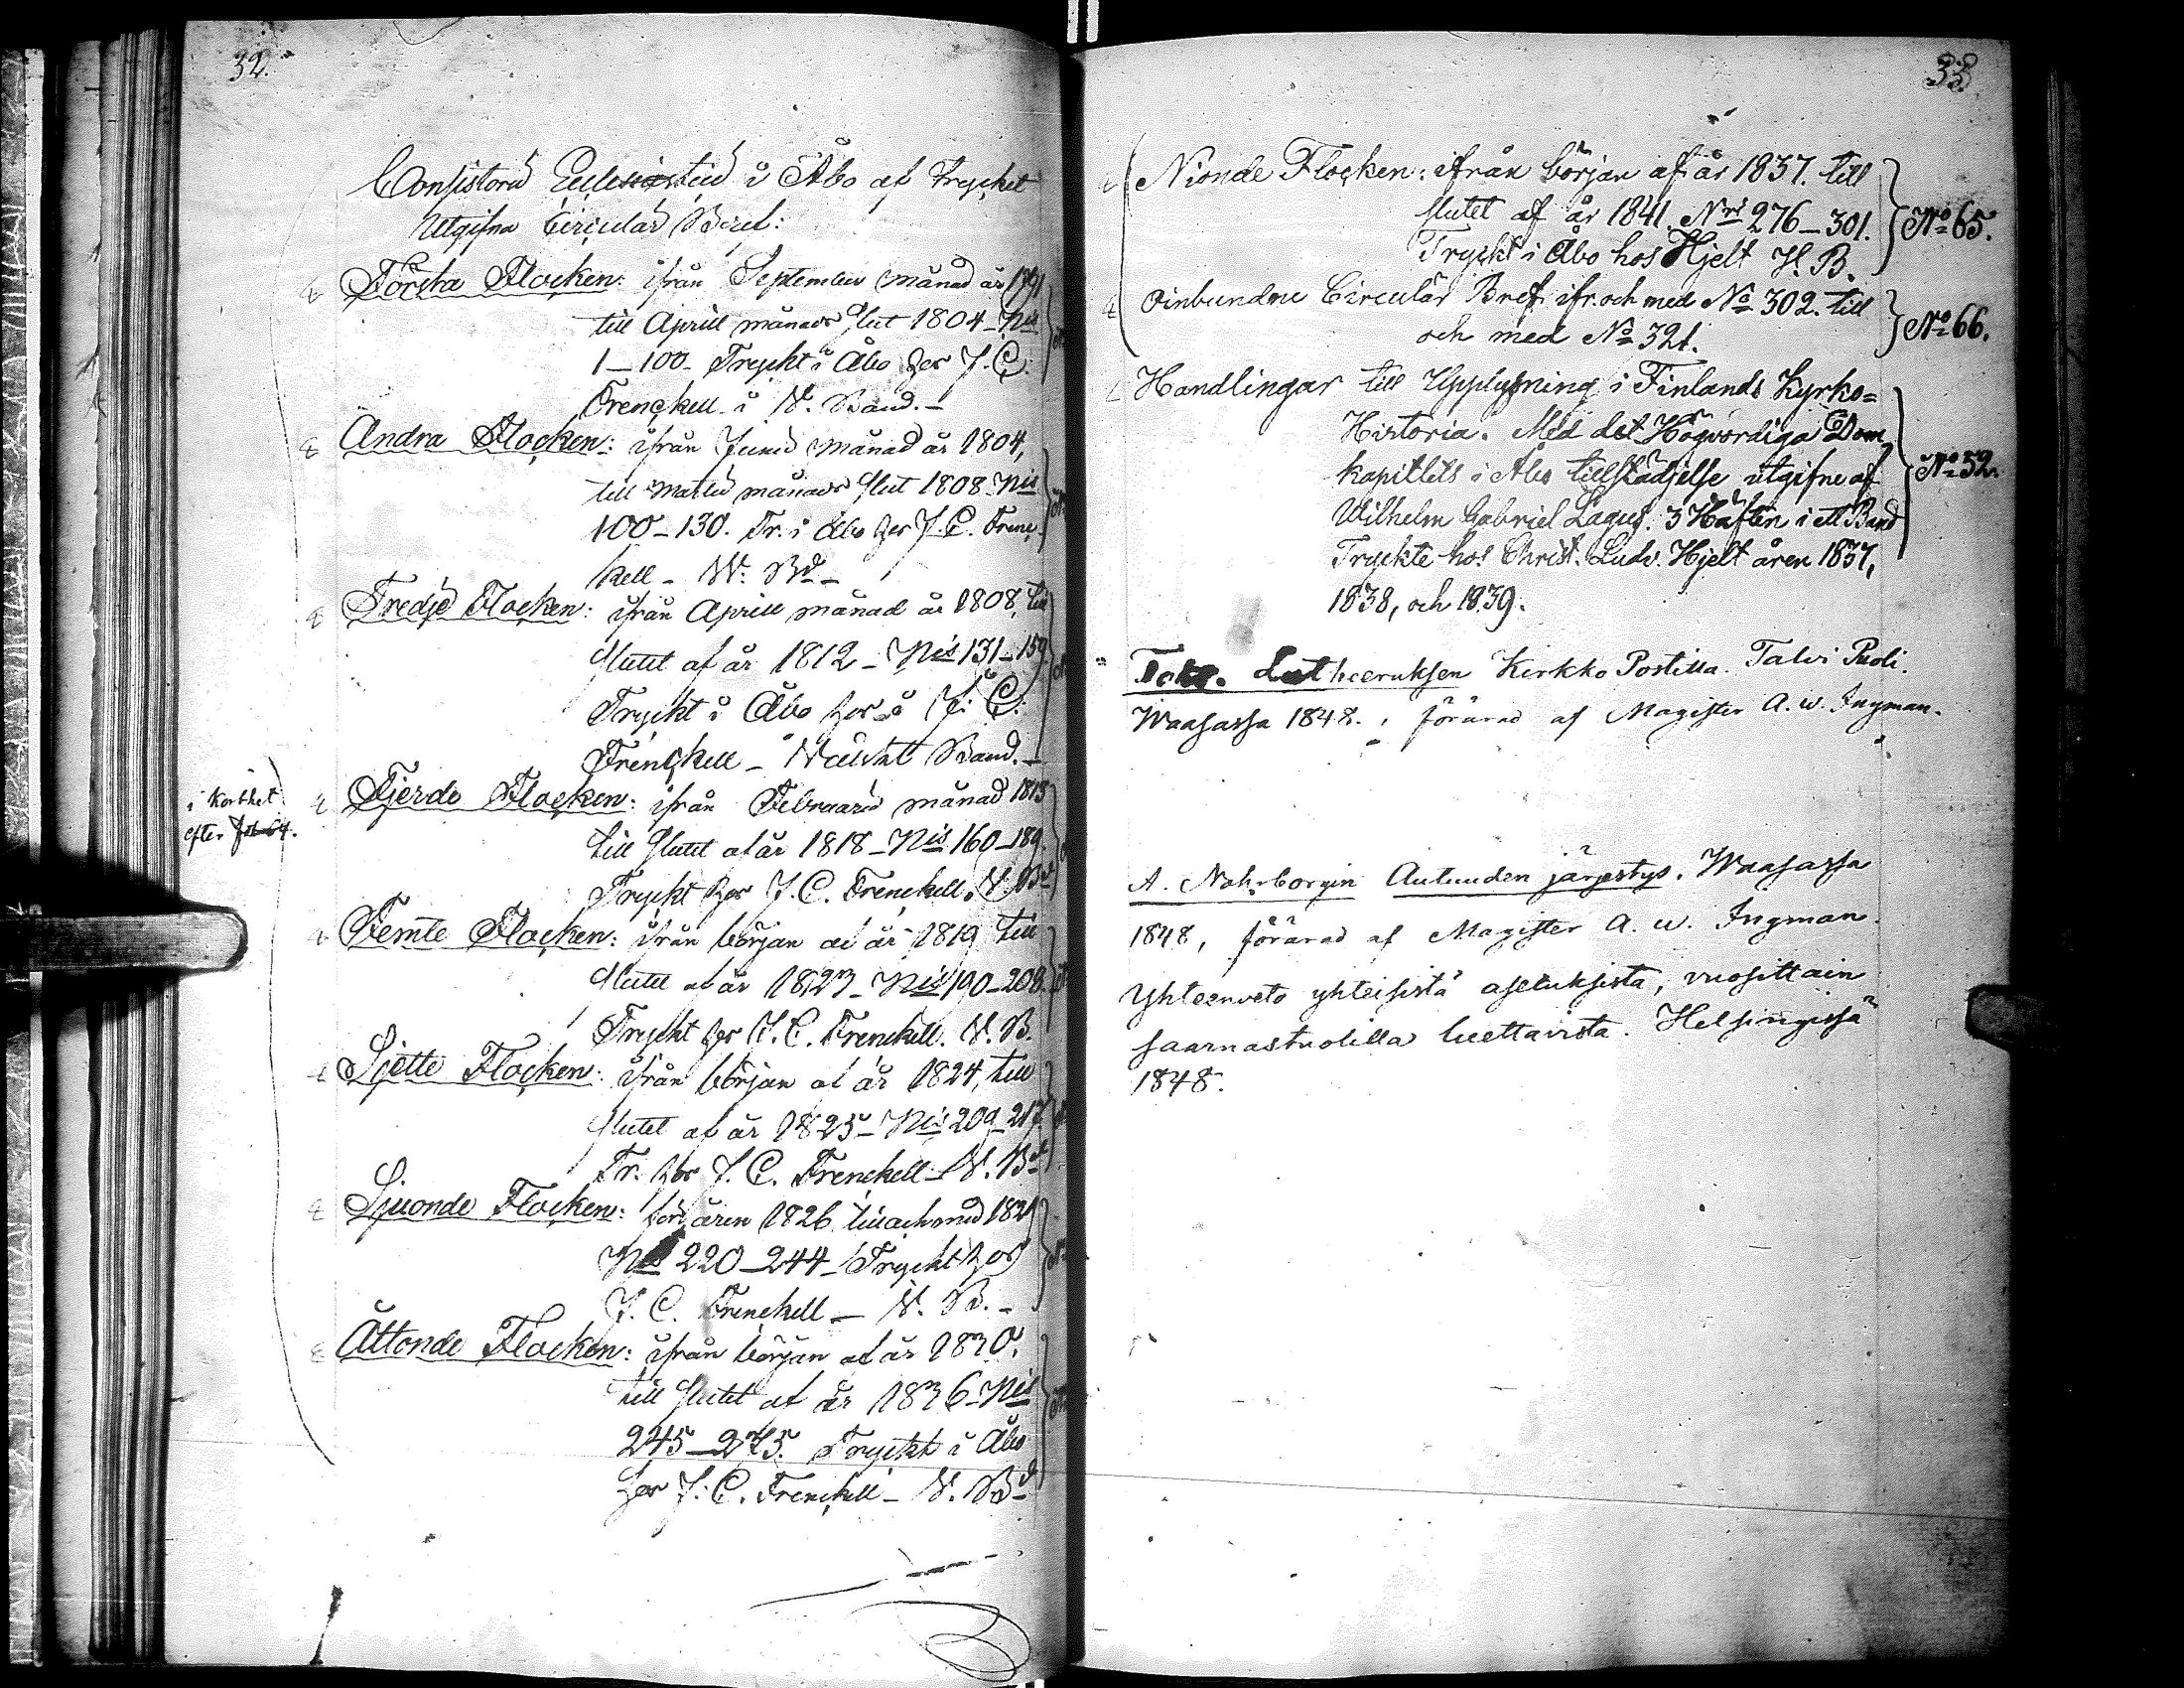 32.
Consistorii Ecclesiastici i Åbo af Trycket
Utgifna Circulär Bref:
Första Flocken: ifrån September månad år 1791
till Aprill månads slut 1804 - N:is
1_100. Tryckt i Åbo hos J. C.
Frenckell i W. Band. -
Andra Flocken: ifrån Junii månad år 1804,
till Martii månads slut 1808 - N:is
100_130. Tr. i Åbo hos J. C. Frenc-
kell - W: Bd -
Tredje Flocken: ifrån Aprill månad år 1808, till
slutet af år 1812 - N:is 131_159
Tryckt i Åbo hos J: C:
Frenckell - Band. -
Fjerde Flocken: ifrån Februarii månad 1813
till slutet af år 1818 - N:is 160_189.
Tryckt hos J. C. Frenckell. W. Bd
i korthet
efter
Femte Flocken: ifrån början af år 1819 till
slutet af år 1823 - N:is 190_208.
Tryckt hos J. C. Frenckell. W. B.
Sjette Flocken: ifrån början af år 1824, till
slutet af år 1825 - N:is 209_217.
Tr. hos J. C. Frenckell - W. Bd
Sjuonde Flocken: för åren 1826 till och med 1829
N:is 220_244 - Tryckt hos
J. C. Frenckell - W. B. -
Åttonde Flocken: ifrån början af år 1830.
till slutet af år 1836 - N:is
245_275. Tryckt i Åbo
hos J: C. Frenckell - W. Bd
33.
Nionde Flocken: ifrån början af år 1837. till
slutet af år 1841. N:ri 276_301.
Tryckt i Åbo hos Hjelt H. B.
No 65.
Oinbundne Circulär Bref ifr. och med No 302. till
och med No 321.
No 66.
Handlingar till Upplysning i Finlands Kyrko=
Historia. Med det Högvördiga Dom
kapitlets i Åbo tillstädjelse utgifne af
Wilhelm Gabriel Lagus. 3 Häften i ett Band
Tryckte hos Christ. Ludv. Hjelt åren 1837,
1838, och 1839.
No 52.
Lutheeruksen Kirkko Postilla. Talvi Puoli.
Waasassa 1848. förärad af Magister A. W. Ingman.
A. Nohrborgin Autuuden järjestys. Waasassa
1848, förärad af Magister A. W. Ingman.
Yhteenveto yhteisistä asetuksista, vuosittain
saarnastuolilla luettavista. Helsingissä
1848.